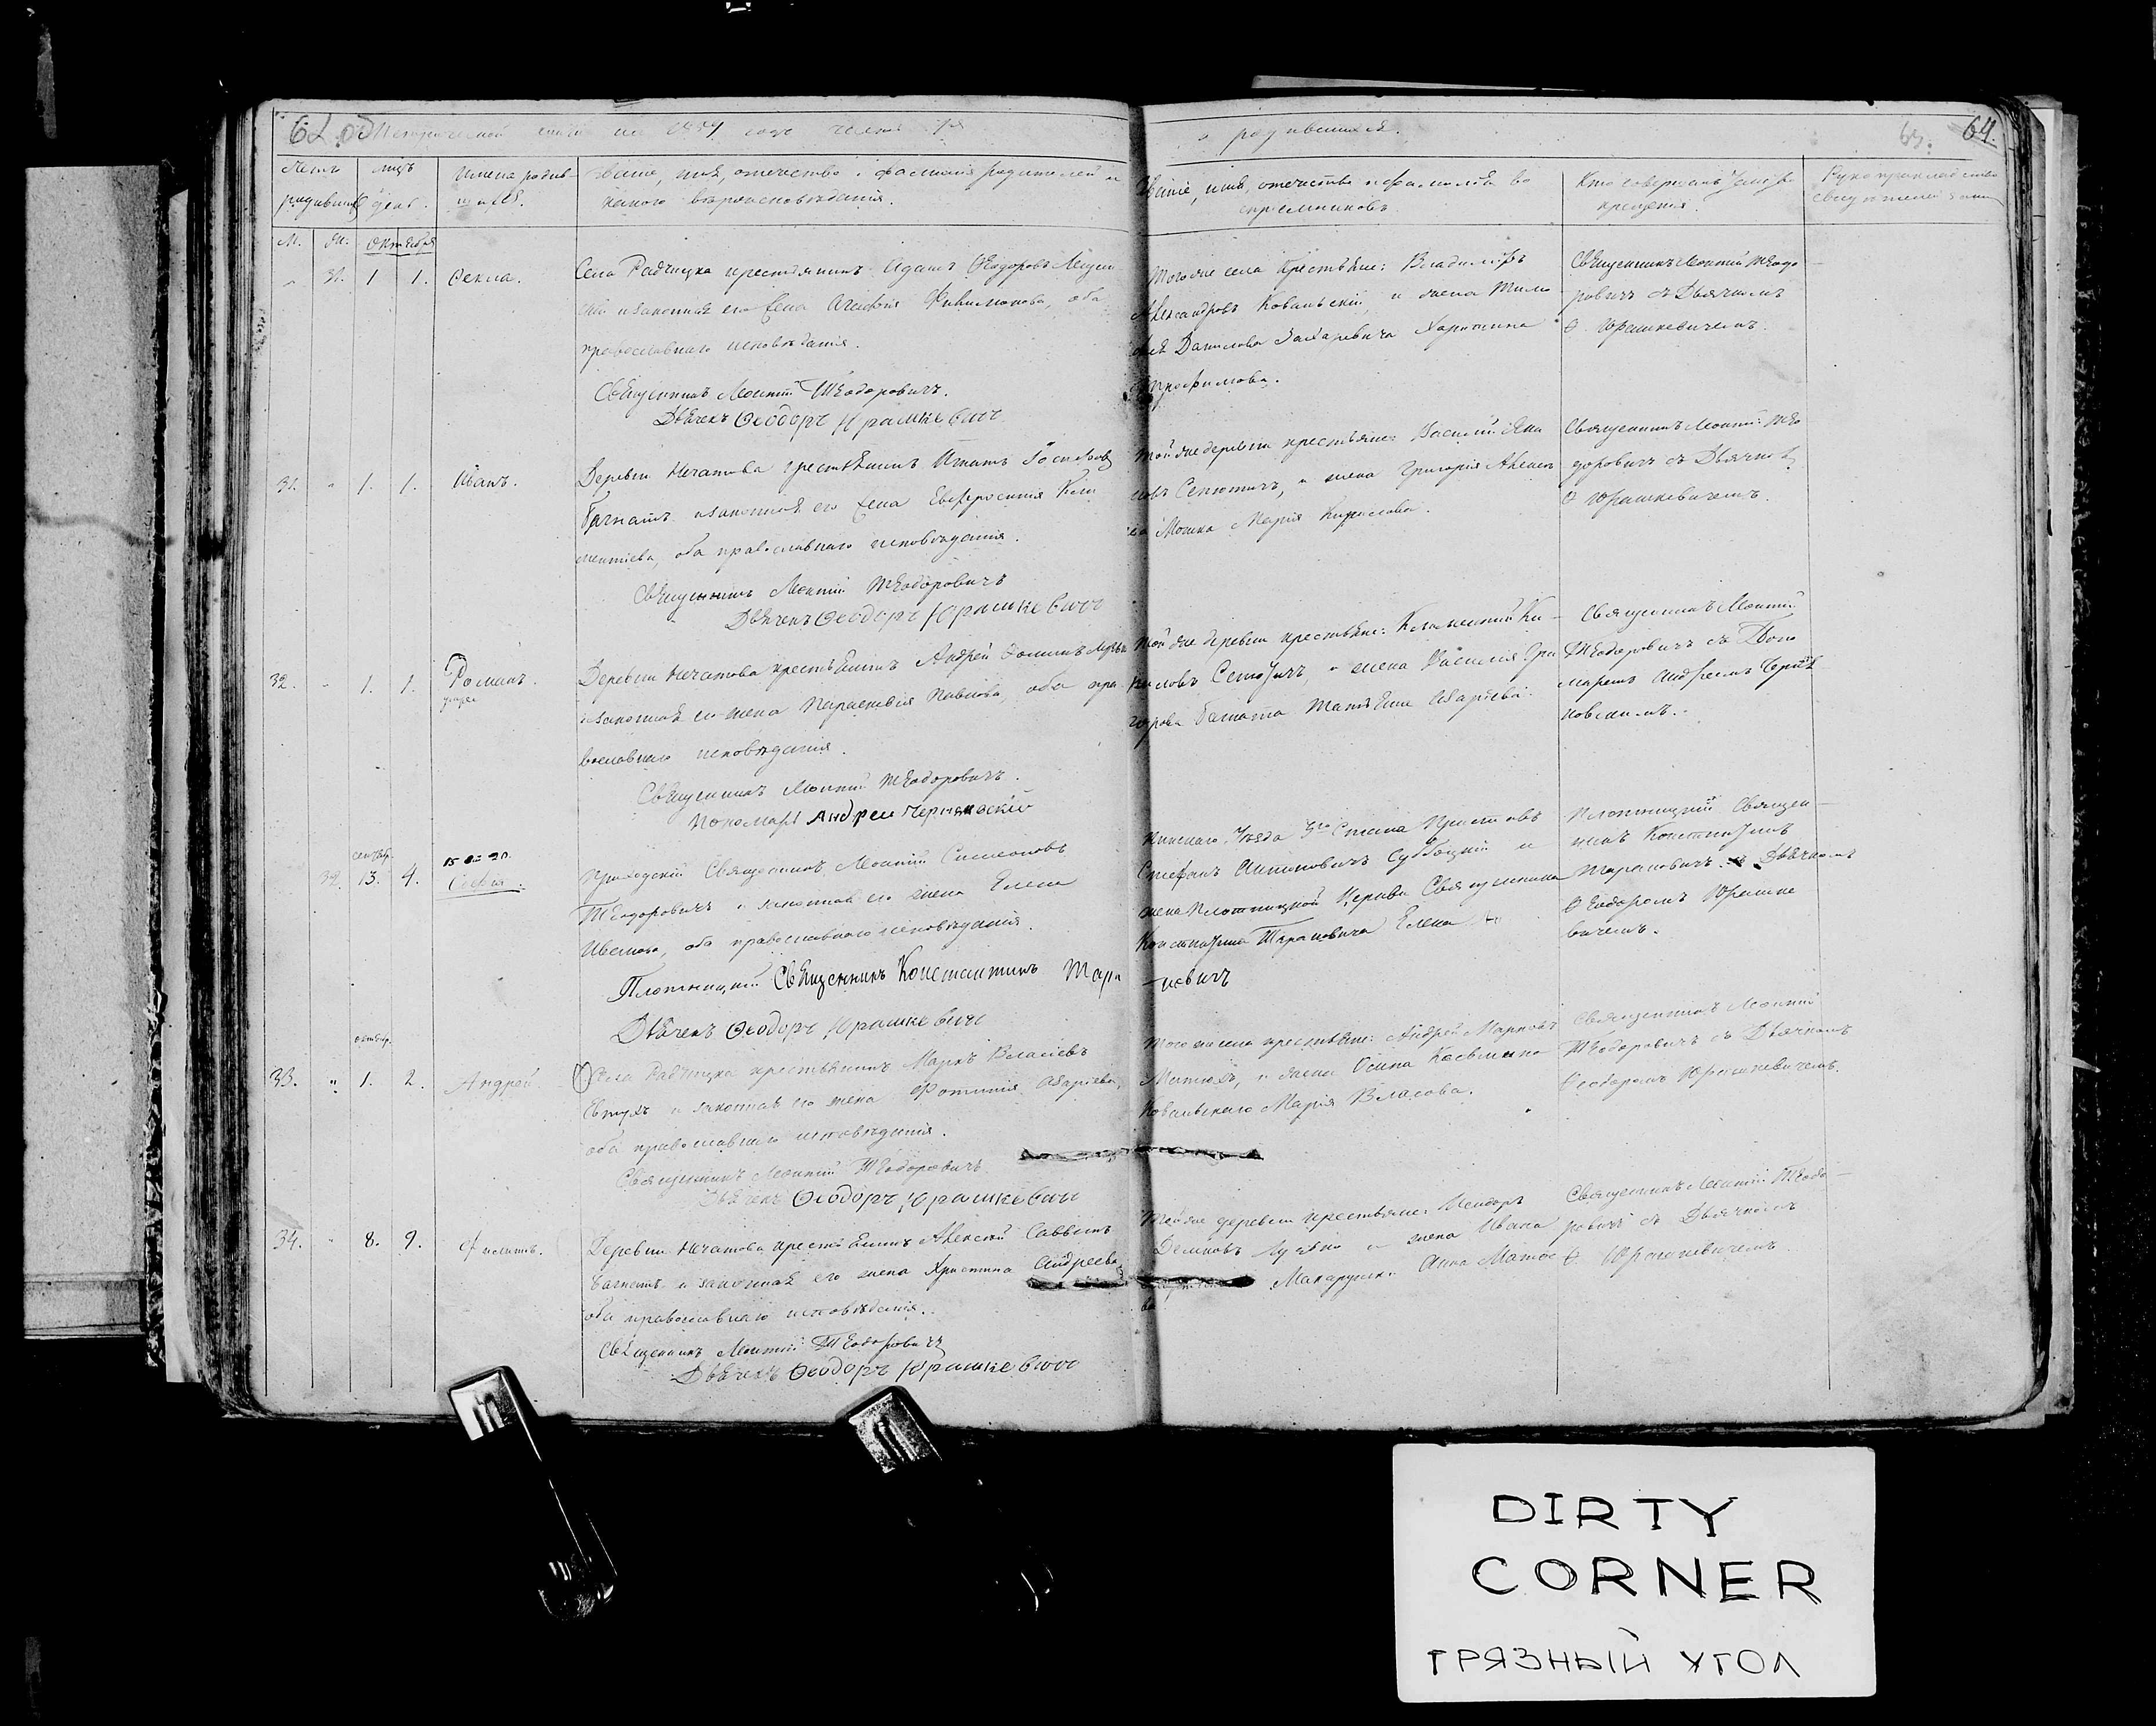 62 об
Метрической книги на 1859 года часть 1я
о родившихся.
63.
64.
Счетъ родившихся
мцъ день.
Имена родившихся.
Званіе, имя, отечество и фамилія родителей и какого вѣроисповѣданія.
Званіе, имя, отечество и фамилія воспріемниковъ
Кто совершалъ таинство крещенія.
Рукоприкладство свидетелей записи
М. Ж. Октября
31. 1 1. Фекла.
Села Радчицка крестьянинъ Адамъ Ѳеодоровъ
и законная его жена Агафія Филимонова, оба
православнаго исповѣданія.
Священникъ Леонтій Тѣодоровичъ.
Дьячекъ Ѳеодоръ Юрашкевичъ
Того же села крестьяне: Владиміръ
Александровъ Ковальскій, и жена
Данилова Захаревича Харитина
Трофимова.
Священникъ Леонтій Тѣодо-
ровичъ съ Дьячкомъ
Ѳ. Юрашкевичемъ.
31. " 1. 1. Иванъ.
Деревни Нечатова крестьянинъ Игнатъ
Багнатъ и законная его жена Евфросинія Кли
ментіева, оба православнаго исповѣданія.
Священникъ Леонтій Тѣодоровичъ
Дьячекъ Ѳеодоръ Юрашкевичъ
Той же деревни крестьяне: Василій
и жена Григорія
Мошка Марія Кирилова.
Священникъ Леонтій Тѣо
доровичъ съ Дьячко
Ѳ Юрашкевичемъ.
32. " 1. 1. Романъ.
умре
Деревни Нечатова крестьянинъ Андрей Фоминъ
и законная его жена Параскевія Павлова, оба пра
вославнаго исповѣданія.
Священникъ Леонтій Тѣодоровичъ.
Пономарь Андрей Черняковскій
Той же деревни крестьяне: Климентій Ки-
риловъ и жена Василія Гри
горова Багната Татіана Азаріева.
Священникъ Леонтій
Тѣодоровичъ съ Поно
маремъ Андреемъ Черня
ковскимъ.
сентбр.
32. 13. 4. Софія.
Приходскій Священникъ Леонтій Симеоновъ
Тѣодоровичъ и законная его жена Елена
Иванова, оба православнаго исповѣданія.
Плотницкій Священникъ Константинъ Тара
-новичъ
Дьячекъ Ѳеодоръ Юрашкевичъ
Пинскаго Уѣзда 3го Стана Приставъ
Стефанъ Антоновичъ и
жена Плотницкой Церкви Священника
Константина Тарановича Елена
Плотницкій Священ-
никъ Константинъ
Тарановичъ съ Дьячкомъ
Ѳеодоромъ Юрашке
вичемъ.
октбр.
33. " 1. 2. Андрей.
Села Радчицка крестьянинъ Маркъ Власіевъ
Евтухъ и законная его жена Фотинія Азаріева,
оба православнаго исповѣданія.
Священникъ Леонтій Тѣодоровичъ
Дьячекъ Ѳеодоръ Юрашкевичъ
Того же села крестьяне: Андрей Марковъ
Матюхъ, и жена Осипа
Ковальскаго Марія Власова.
Священникъ Леонтій
Тѣодоровичъ съ Дьячкомъ
Ѳеодоромъ Юрашкевичемъ.
34. " 8. 9. Филипъ.
Деревни Нечатова крестьянинъ Алексій Саввинъ
Багнатъ и законная его жена Христина Андреева
оба православнаго исповѣданія.
Священникъ Леонтій Тѣодоровичъ
Дьячекъ Ѳеодоръ Юрашкевичъ
Той же деревни крестьяне:
и жена Ивана
Анна
Священникъ Леонтій Тѣодо-
ровичъ съ Дьячкомъ
Ѳ Юрашкевичемъ
DIRTY
CORNER
ГРЯЗНЫЙ УГОЛ